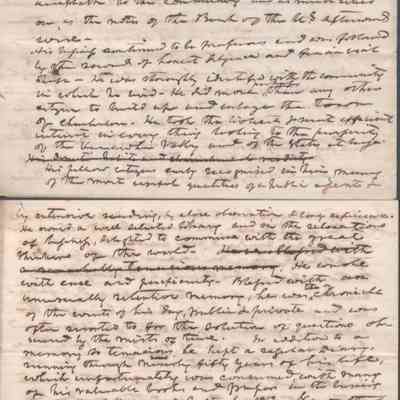 acceptable to the community and as
as the notes of the Bank of the U.S. afterward
were—
His business continued to be prosperous and was followed
by the reward of honest diligence and
He was strongly identified with the community
in which he lived— He did more, perhaps than any other
citizen to build up and enlarge the town
of Charleston. He took the liveliest & most efficient
interest in every thing looking to the prosperity
of the Kanawha Valley and of the State at large.
His fellow citizens early recognized in him many
of the most useful qualities of a public agent &
by extensive reading, by close observation & long experience.
He owned a well selected library and in the relaxations
of business, delighted to commune with the great
thinkers of the world. He was blessed with
a remarkably tenacious memory. He wrote
with ease and perspicuity. Blessed with an
unusually retentive memory, he was the chronicle
of the events of his day, public & private and was
often resorted to for the solution of questions ob-
scured by the mists of time. In addition to a
memory so tenacious he kept a regular diary
running through nearly fifty years of his life,
which unfortunately was consumed, with many
of his valuable books and papers in the burning